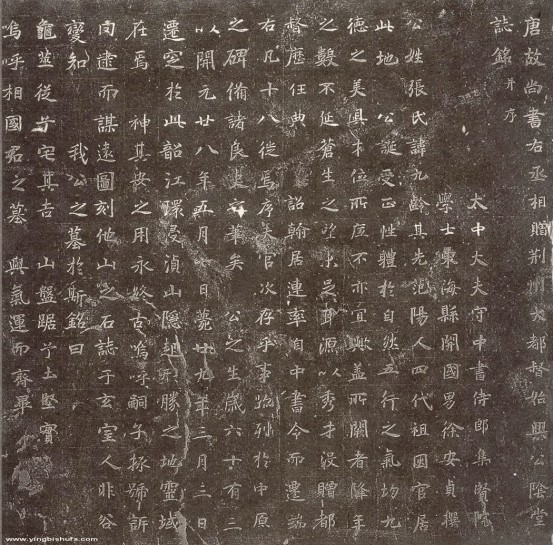 唐故尚書右丞相贈荆州大都督始興公陰堂
誌銘 并序
太中大夫守中書侍郎集賢院
學士東海縣開國男徐安貞撰
公姓張氏諱九齡其先范陽人四代祖因官居
此地 公誕受正性體於自然五行之氣均九
德之美具才位所底不亦宜歟蓋所闕者降年
之數不延蒼生之望未足耳源以秀才没贈都
督歷任典 詔翰居連率自中書令而遷端
右凡十八徙焉序夫官次存乎事迹列於中原
之碑備諸良史筆矣 公之生歲六十有三
以開元廿八年五月 日薨廿九年三月三日
遷窆於此韶江環浸湞山隱起形勝之地靈域
在焉 神其安之用永終古嗚呼嗣子拯號訴
罔逮而謀遠圖刻他山之石誌于玄室人非谷
變知 我公之墓於斯銘曰
龜筮從兮宅其吉 山盤踞兮土堅實
嗚呼相國君之墓 與氣運而齊畢
www.yingbishufa.com